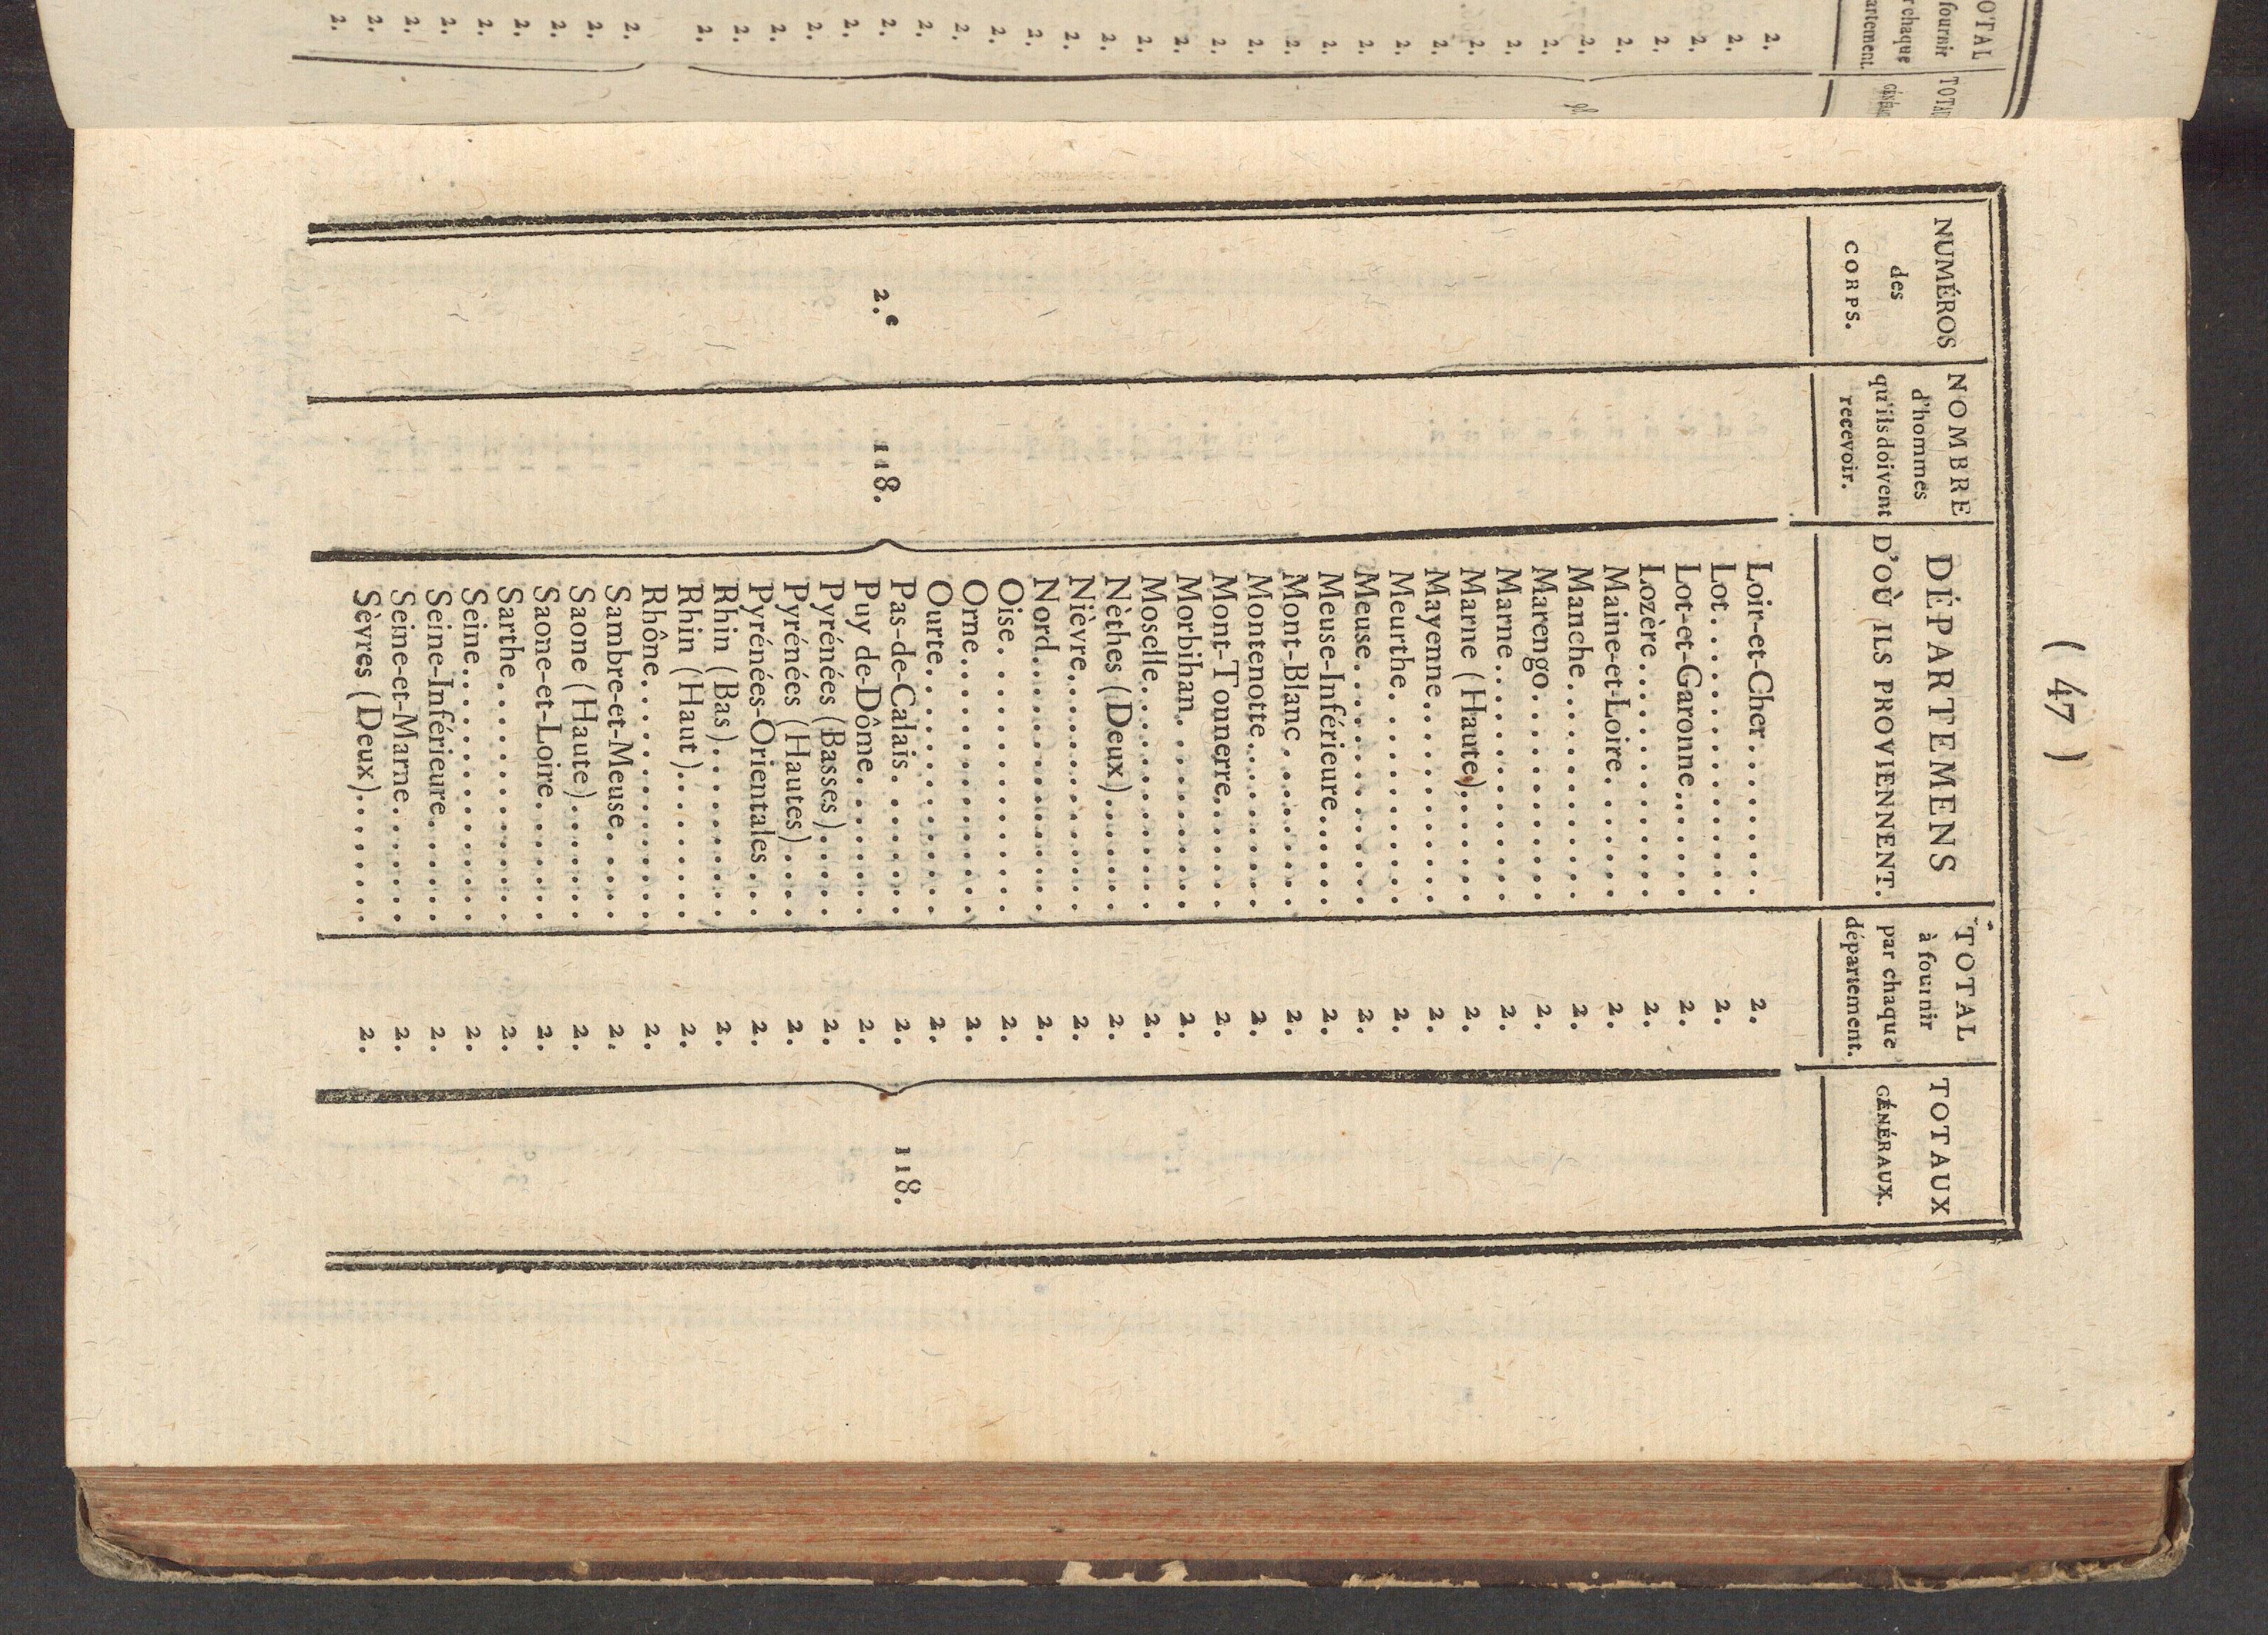 ( 47 )
NUMÉROS
des
CORPS.
NOMBRE
d'hommes
qu'ils doivent
recevoir.
DÉPARTEMENS
D'OÙ ILS PROVIENNENT.
TOTAL
à fournir
par chaque
département.
TOTAUX
GÉNÉRAUX.
2.e
118.
Loir-et-Cher......... 2.
Lot............ 2.
Lot-et-Garonne...... 2.
Lozère............ 2.
Maine-et-Loire....... 2.
Manche........... 2.
Marengo.......... 2.
Marne............ 2.
Marne (Haute)....... 2.
Mayenne.......... 2.
Meurthe.......... 2.
Meuse............ 2.
Meuse-Inférieure...... 2.
Mont-Blanc........ 2.
Montenotte........ 2.
Mont-Tonnerre...... 2.
Morbihan......... 2.
Moselle........... 2.
Nèthes (Deux)...... 2.
Nièvre............ 2.
Nord............. 2.
Oise............. 2.
Orne............. 2.
Ourte............ 2.
Pas-de-Calais....... 2.
Puy de-Dôme....... 2.
Pyrénées (Basses)..... 2.
Pyrénées (Hautes).... 2.
Pyrénées-Orientales... 2.
Rhin (Bas)......... 2.
Rhin (Haut)........ 2.
Rhône............ 2.
Sambre-et-Meuse.... 2.
Saone (Haute)...... 2.
Saone-et-Loire...... 2.
Sarthe............ 2.
Seine............. 2.
Seine-Inférieure..... 2.
Seine-et-Marne...... 2.
Sèvres (Deux)....... 2.
118.